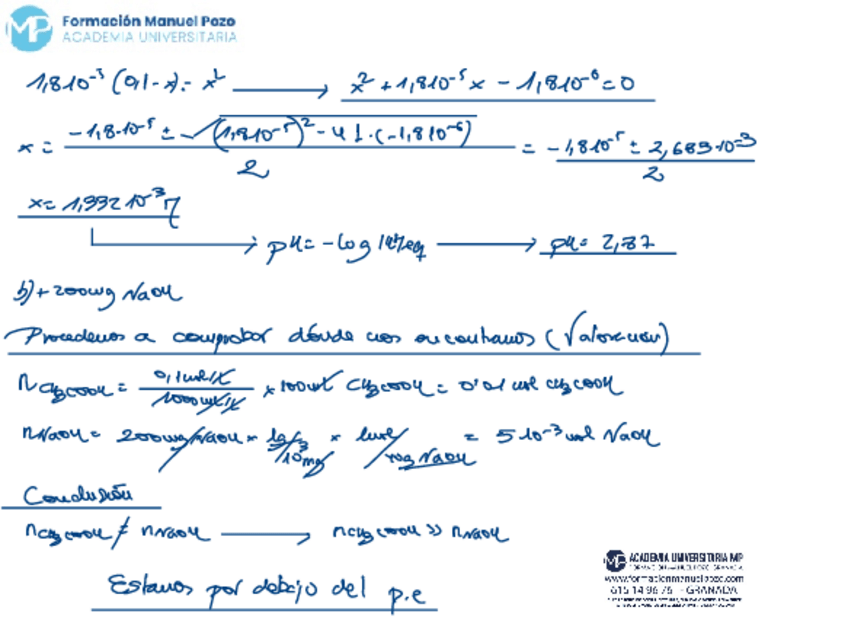 MP Formación Manuel Pozo
ACADEMIA UNIVERSITARIA
1,8 10⁻⁵ (0,1 - x) = x² → x² + 1,8 10⁻⁵ x - 1,8 10⁻⁶ = 0
x = (-1,8·10⁻⁵ ± √((1,8 10⁻⁵)² - 4 1·(-1,8 10⁻⁶))) / 2 = (-1,8 10⁻⁵ ± 2,683·10⁻³) / 2
x = 1,332 10⁻³ M
→ pH = -log |H⁺|eq → pH = 2,87
b) + 200mg NaOH
Procedemos a comprobar dónde nos encontramos (Valoración)
nCH₃COOH = 0,1 mol/L / 1000 ml/L × 100 ml CH₃COOH = 0'01 mol CH₃COOH
nNaOH = 200mg NaOH × 1g/10³mg × 1mol/40g NaOH = 5 10⁻³ mol NaOH
Conclusión
nCH₃COOH ≠ nNaOH → nCH₃COOH >> nNaOH
Estamos por debajo del p.e
MP ACADEMIA UNIVERSITARIA MP
FORMACIÓN MANUEL POZO GRANADA
www.formacionmanuelpozo.com
615 14 96 76 - GRANADA